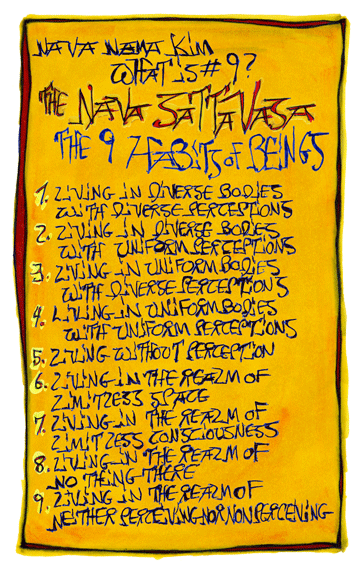 NAVA NAMA KIM
WHAT IS # 9?
THE NAVA SATTAVASA
THE 9 HABITS OF BEINGS
1. LIVING IN DIVERSE BODIES
WITH DIVERSE PERCEPTIONS
2. LIVING IN DIVERSE BODIES
WITH UNIFORM PERCEPTIONS
3. LIVING IN UNIFORM BODIES
WITH DIVERSE PERCEPTIONS
4. LIVING IN UNIFORM BODIES
WITH UNIFORM PERCEPTIONS
5. LIVING WITHOUT PERCEPTION
6. LIVING IN THE REALM OF
LIMITLESS SPACE
7. LIVING IN THE REALM OF
LIMITLESS CONSCIOUSNESS
8. LIVING IN THE REALM OF
NO THING THERE
9. LIVING IN THE REALM OF
NEITHER PERCEIVING NOR NON PERCEIVING